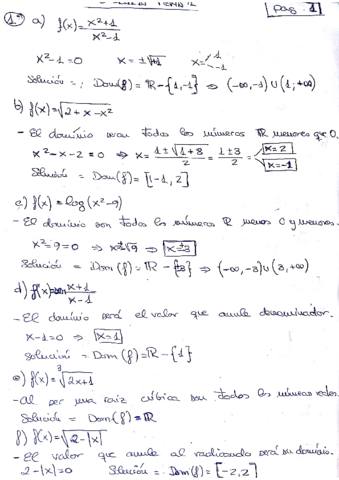 Pag. 1
1º a) f(x) = x²+1 / x²-1
x²-1=0 x=±√+1 x=<1 -1
Solución =: Dom(f) = ℝ-{1,-1} ⇒ (-∞,-1) ∪ (1,+∞)
b) f(x) = √2+x-x²
- El dominio seran todos los números ℝ menores que 0.
x²-x-2=0 ⇒ x = 1±√1+8 / 2 = 1±3 / 2 = x=2 x=-1
Solución = Dom(f) = [-1,2]
c) f(x) = log(x²-9)
- El dominio son todos los números ℝ menos 0 y menores.
x²-9=0 ⇒ x=±√9 ⇒ x=±3
Solución = Dom(f) = ℝ-{±3} ⇒ (-∞,-3) ∪ (3,+∞)
d) f(x) = x+1 / x-1
- El dominio será el valor que anule denominador.
x-1=0 ⇒ x=1
Solución = Dom(f) = ℝ-{1}
e) f(x) = ³√2x+1
- Al ser una raiz cúbica son todos los números reales.
Solución = Dom(f) = ℝ
f) f(x) = √2-|x|
- El valor que anule al radicando será su dominio.
2-|x|=0 Solución = Dom(f) = [-2,2]